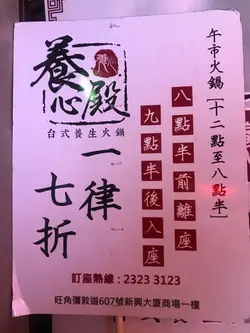 養心殿
台式養生火鍋
一律
七折
午市火鍋 [十二點至八點半]
八點半前離座
九點半後入座
訂座熱線：2323 3123
旺角彌敦道607號新興大廈商場一樓